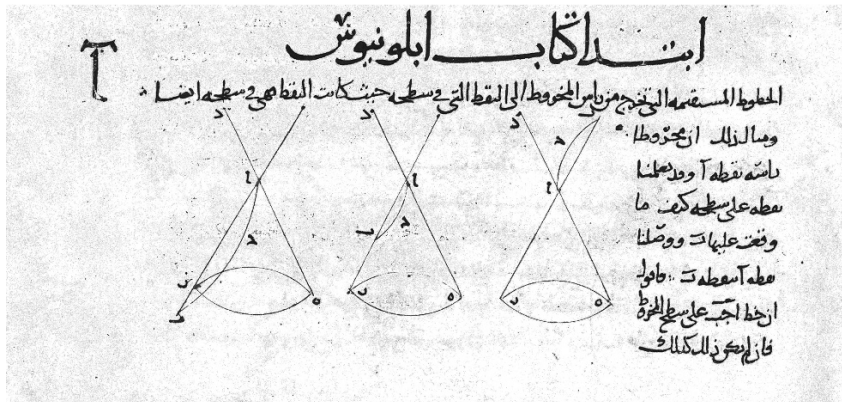 ابتدا كتاب ابلونيوس
الخطوط المستقيمه التي تخرج من راس المخروط الى النقط التي في سطحه حيث كانت النقط فهي في سطحه ايضا
ومثال ذلك ان مخروطا
راسه نقطه آ وقد تعلمنا
نقطه على سطحه كيف ما
وقعت عليها ب ووصلنا
نقطه آ بنقطه ب فاقول
ان خط اجب على سطح المخروط
فان لم يكن ذلك كذلك